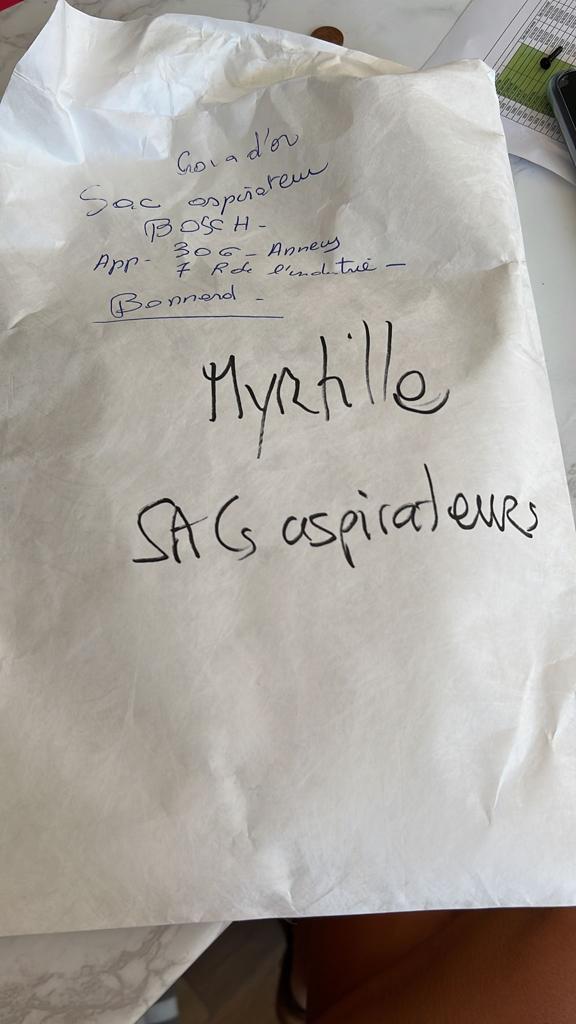 d'or
Sac aspirateur
BOSCH -
App - 306 - Annecy
7 R de l'industrie -
Bonnard -
Myrtille
SACs aspirateurs